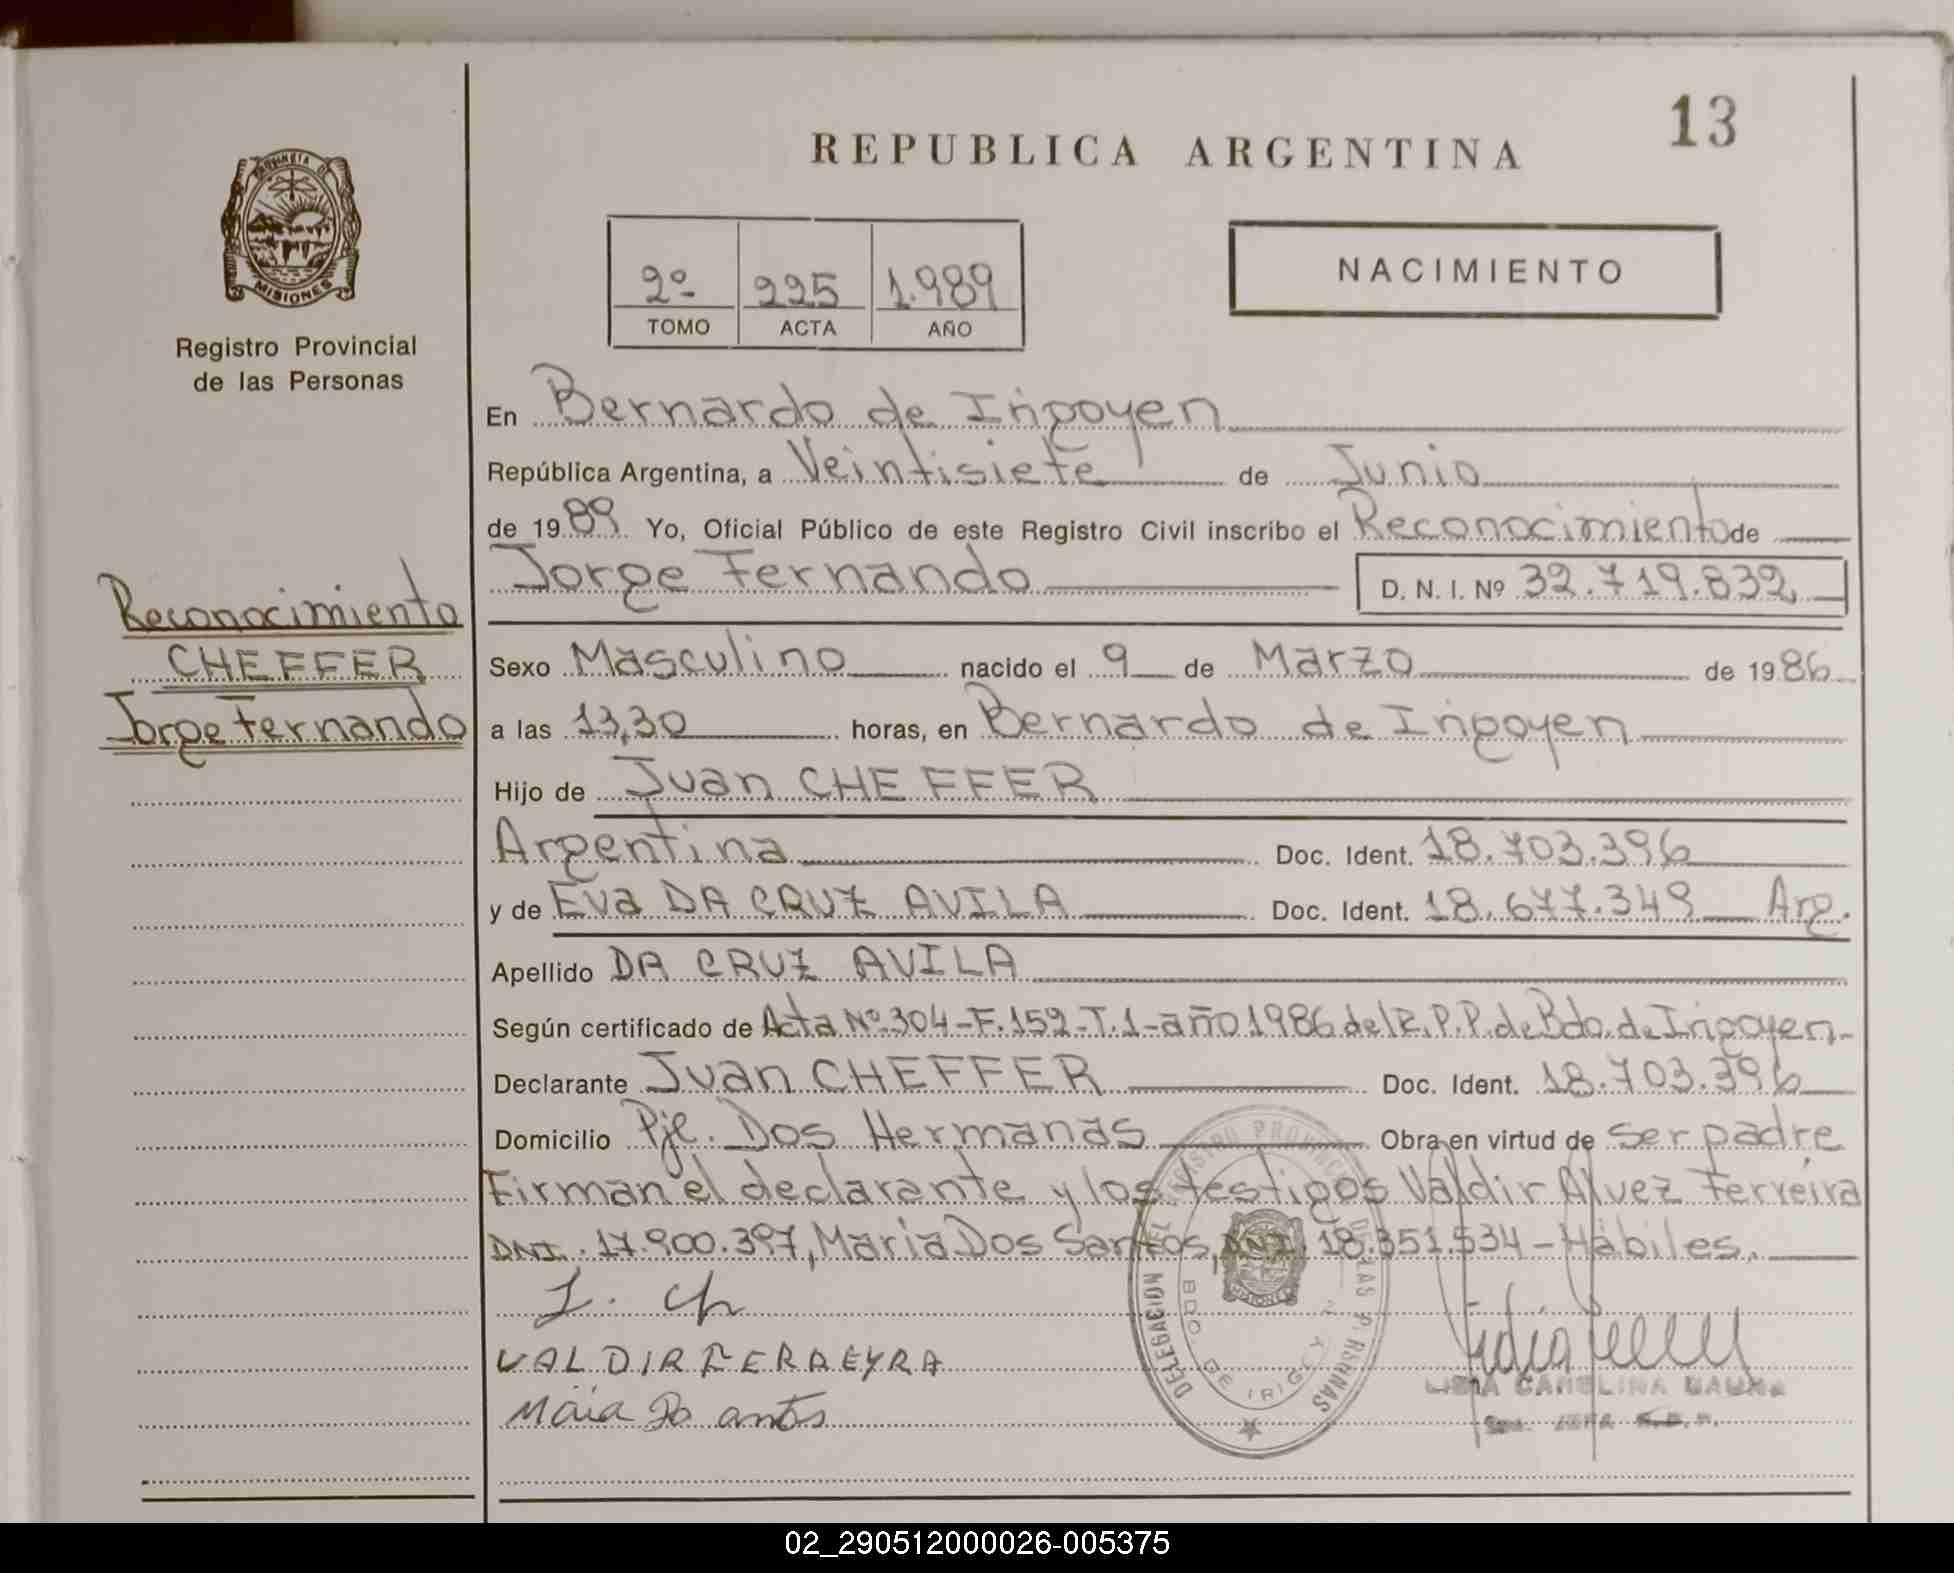 13
REPUBLICA ARGENTINA
PROVINCIA D
MISIONES
Registro Provincial
de las Personas
2º 225 1.989
TOMO ACTA AÑO
NACIMIENTO
En Bernardo de Irigoyen
República Argentina, a Veintisiete de Junio
de 1989 Yo, Oficial Público de este Registro Civil inscribo el Reconocimiento de
Jorge Fernando D. N. I. Nº 32.719.832
Reconocimiento
CHEFFER
Jorge Fernando
Sexo Masculino nacido el 9 de Marzo de 1986
a las 13,30 horas, en Bernardo de Irigoyen
Hijo de Juan CHEFFER
Argentina Doc. Ident. 18.703.396
y de Eva DA CRUZ AVILA Doc. Ident. 18.677.349 Arg.
Apellido DA CRUZ AVILA
Según certificado de Acta Nº 304-F.152-T.1-año 1986 del R.P.P. de Bdo. de Irigoyen-
Declarante Juan CHEFFER Doc. Ident. 18.703.396
Domicilio Pje. Dos Hermanas Obra en virtud de ser padre
Firman el declarante y los testigos Valdir Alvez Ferreira
DNI. 17.900.397, Maria Dos Santos, DNI. 18.351.534 - Hábiles.
J. Ch
VALDIR FERREYRA
DELEGACION DEL REGISTRO PROVINCIAL DE LAS PERSONAS
BDO. DE IRIGOY
CAROLINA
02_290512000026-005375